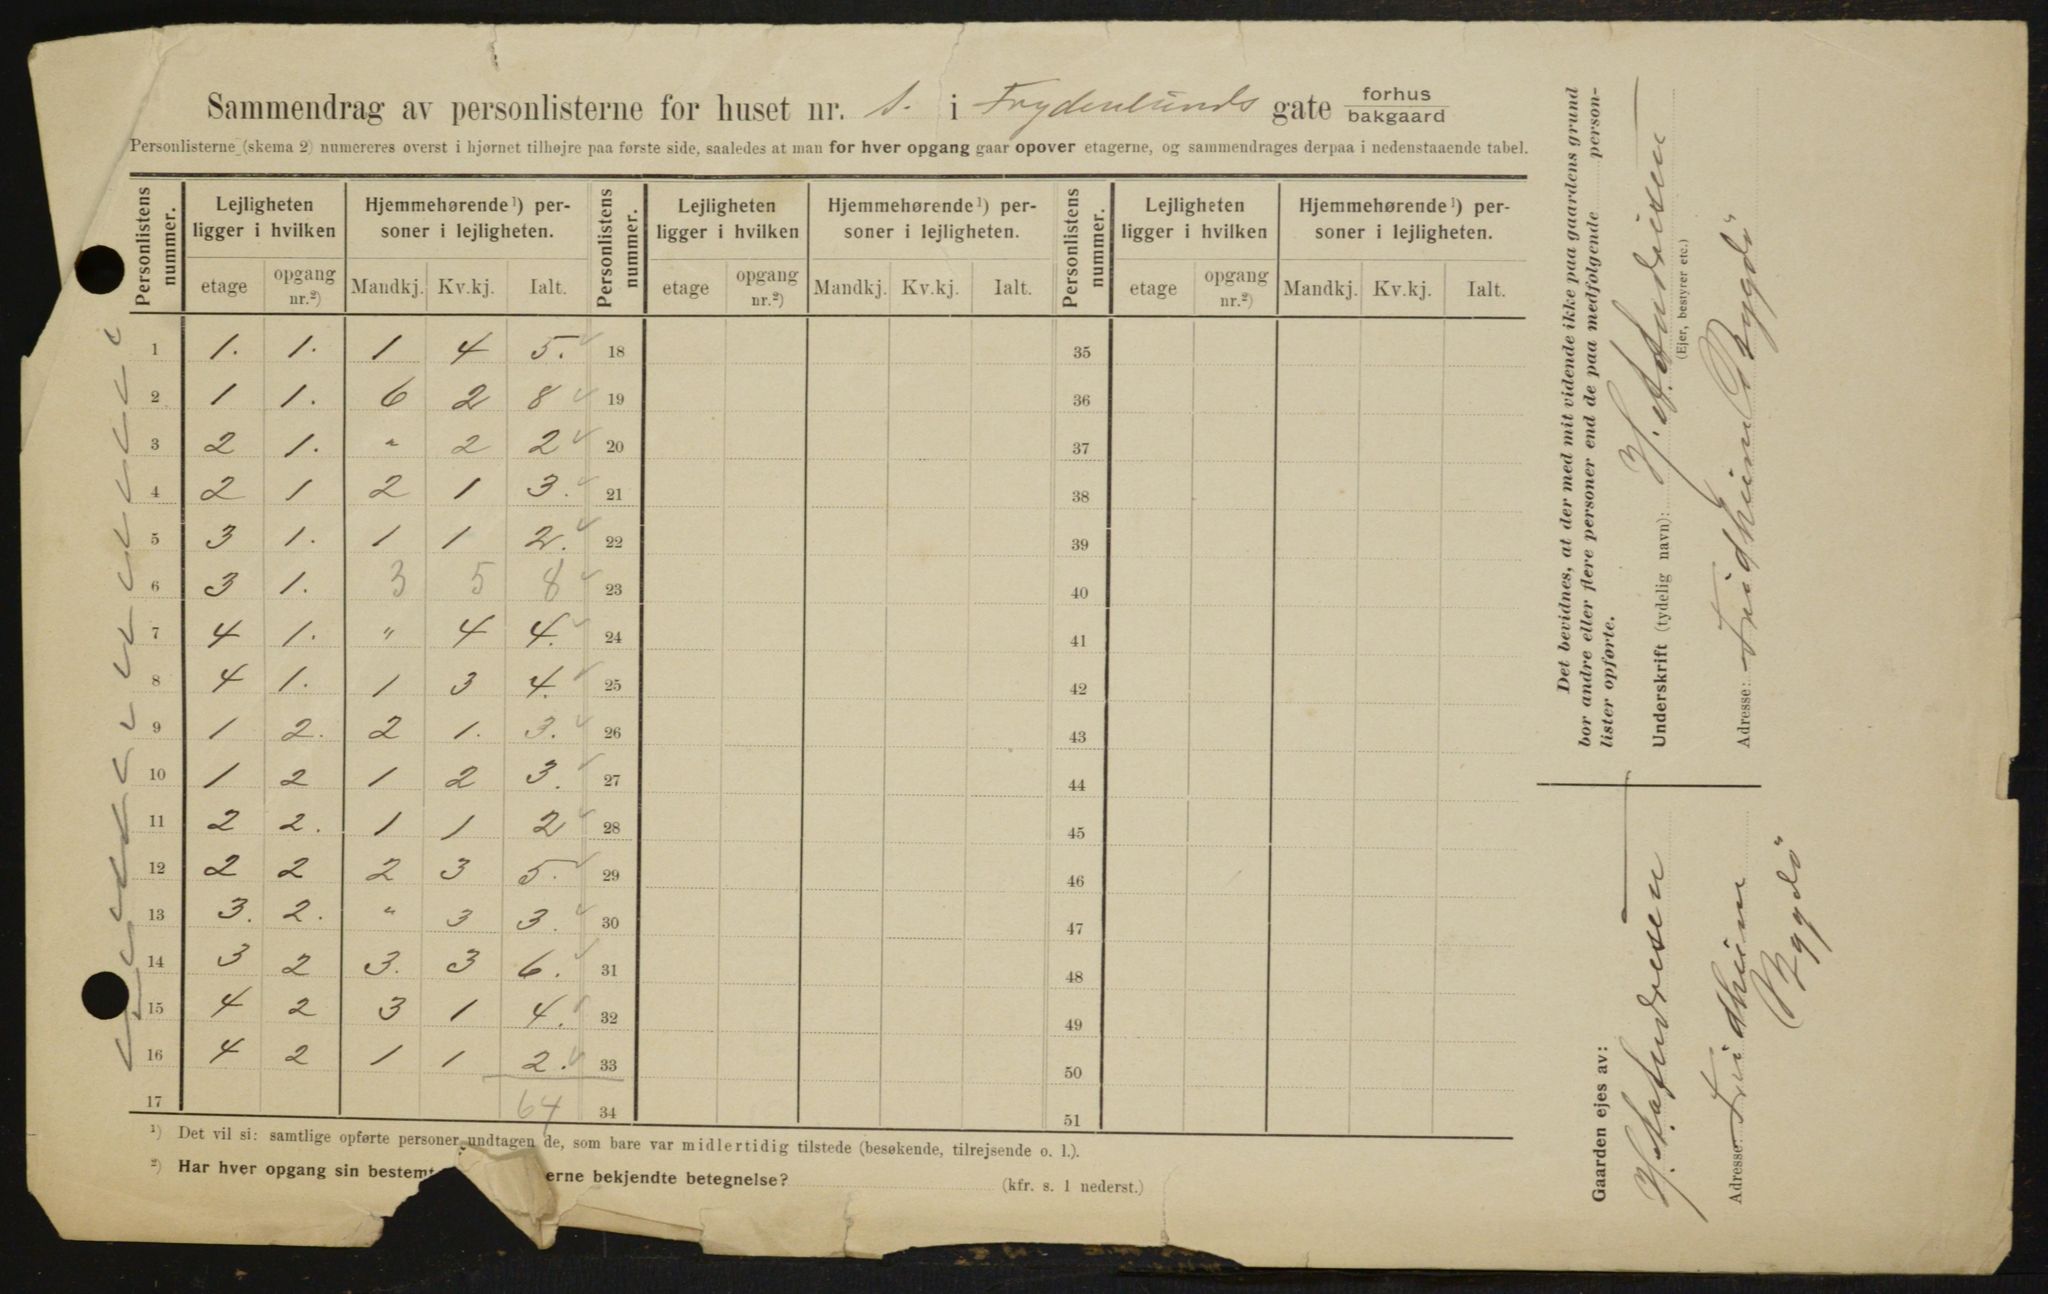 Sammendrag av personlisterne for huset nr. 1. i Frydenlunds gate forhus
bakgaard
Personlisterne (skema 2) numereres øverst i hjørnet tilhøjre paa første side, saaledes at man for hver opgang gaar opover etagerne, og sammendrages derpaa i nedenstaaende tabel.
Personlistens nummer. Lejligheten ligger i hvilken Hjemmehørende ¹) personer i lejligheten. Personlistens nummer. Lejligheten ligger i hvilken Hjemmehørende ¹) personer i lejligheten. Personlistens nummer. Lejligheten ligger i hvilken Hjemmehørende ¹) personer i lejligheten.
etage opgang nr.²) Mandkj. Kv.kj. Ialt. etage opgang nr.²) Mandkj. Kv.kj. Ialt. etage opgang nr.²) Mandkj. Kv.kj. Ialt.
1 1. 1. 1 4 5. 18 35
2 1 1. 6 2 8 19 36
3 2 1. " 2 2 20 37
4 2 1 2 1 3. 21 38
5 3 1. 1 1 2. 22 39
6 3 1. 3 5 8 23 40
7 4 1. " 4 4. 24 41
8 4 1. 1 3 4. 25 42
9 1 2. 2 1. 3. 26 43
10 1 2 1 2 3. 27 44
11 2 2. 1 1 2 28 45
12 2 2 2 3 5. 29 46
13 3. 2. " 3 3. 30 47
14 3 2 3. 3 6. 31 48
15 4 2 3 1 4. 32 49
16 4 2 1 1 2. 33 50
17 64 34 51
¹) Det vil si: samtlige opførte personer undtagen de, som bare var midlertidig tilstede (besøkende, tilrejsende o. l.).
²) Har hver opgang sin bestemt erne bekjendte betegnelse? (kfr. s. 1 nederst.)
Det bevidnes, at der med mit vidende ikke paa gaardens grund
bor andre eller flere personer end de paa medfølgende person-
lister opførte.
Underskrift (tydelig navn): Andresen
(Ejer, bestyrer etc.)
Adresse: Fridheim Bygdö
Gaarden ejes av:
Andresen
Adresse Fridheim
Bygdö